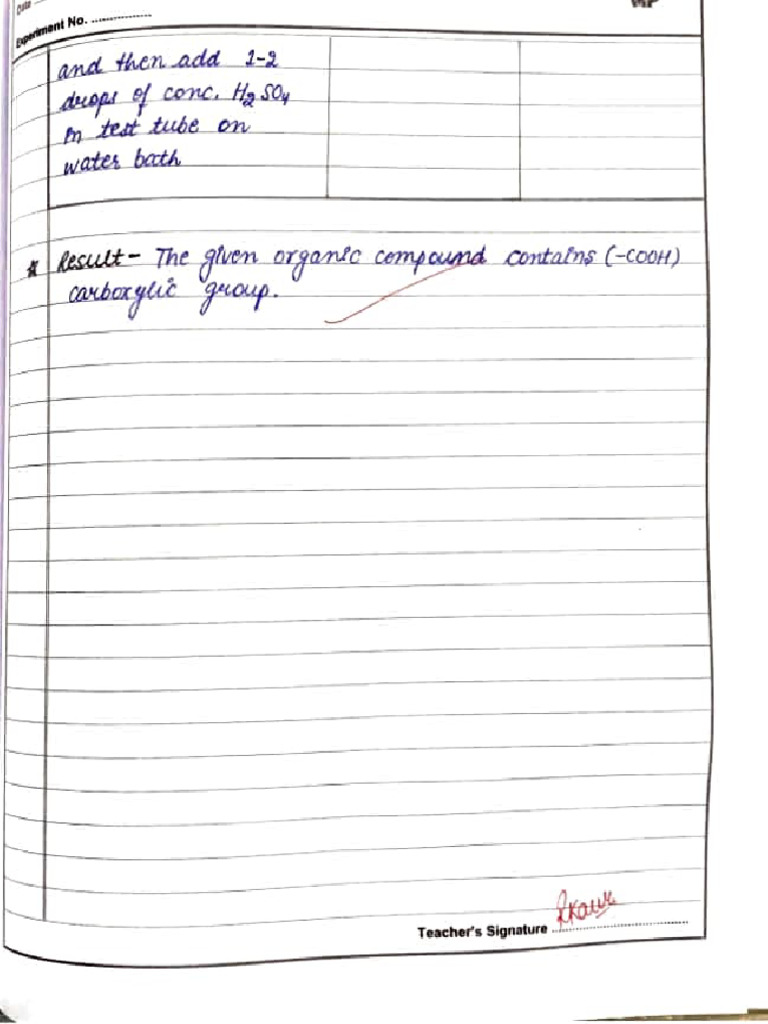 Date
Experiment No. ................
and then add 1-2
drops of conc. H₂SO₄
in test tube on
water bath
* Result- The given organic compound contains (-COOH)
carboxylic group.
Teacher's Signature ................................